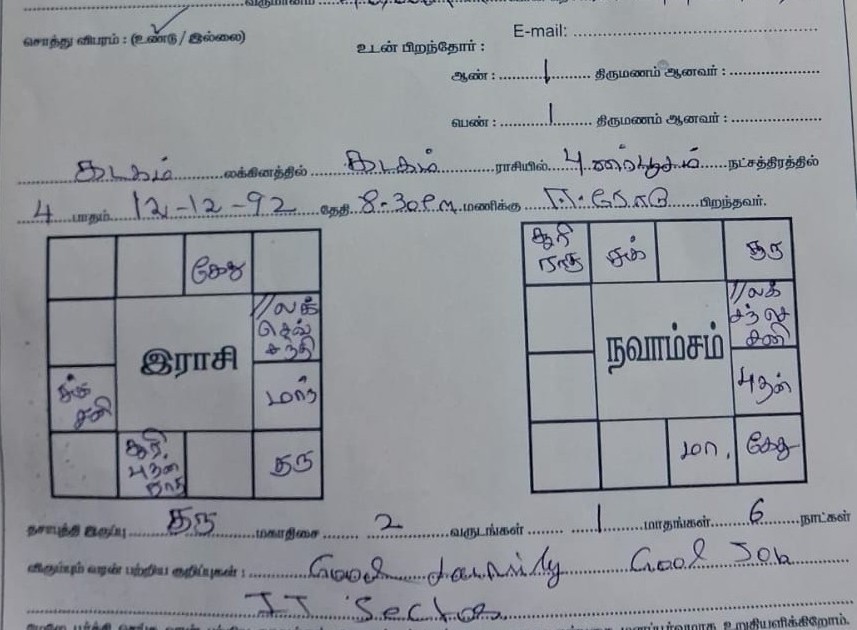 வருமானம்
சொத்து விபரம் : (உண்டு / இல்லை)
E-mail:
உடன் பிறந்தோர் :
ஆண் : 1 திருமணம் ஆனவர் :
பெண் : 1 திருமணம் ஆனவர் :
கடகம் லக்கினத்தில் கடகம் ராசியில் புனர்பூசம் நட்சத்திரத்தில்
4 பாதம் 12-12-92 தேதி 8-30 P.M. மணிக்கு பிறந்தவர்.
கேது
//லக் செவ் சந்தி
இராசி
சுக் சனி
மாந்
சூரி. புதன் ராகு
குரு
சூரி ராகு
சுக்
குரு
//லக் சந் செ சனி
நவாம்சம்
புதன்
மா.
கேது
தசாபுத்தி இருப்பு குரு மகாதிசை 2 வருடங்கள் 1 மாதங்கள் 6 நாட்கள்
விரும்பும் வரன் பற்றிய குறிப்புகள் : Good family Good Job
IT Sector
உறுதியளிக்கிறோம்.